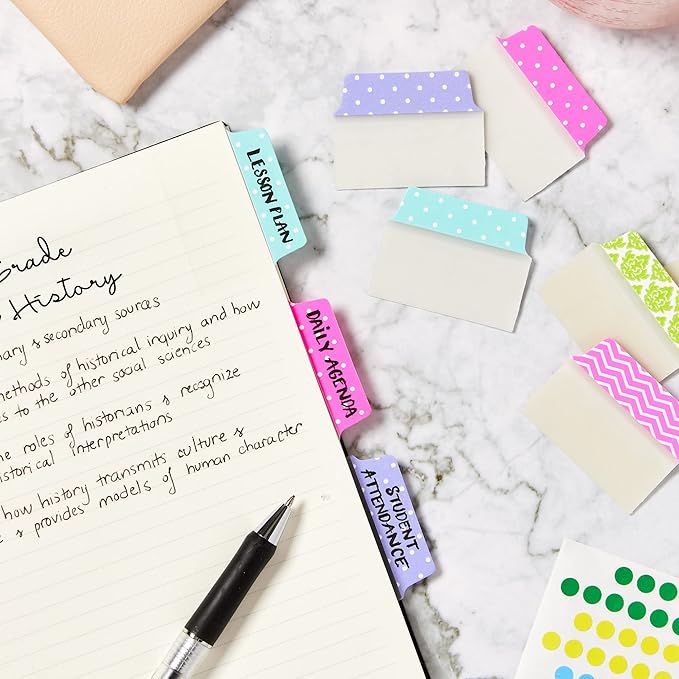 Grade
History
ary & secondary sources
methods of historical inquiry and how
es to the other social sciences
he roles of historians & recognize
istorical interpretations
how history transmits culture &
& provides models of human character
LESSON PLAN
DAILY AGENDA
STUDENT
ATTENDANCE